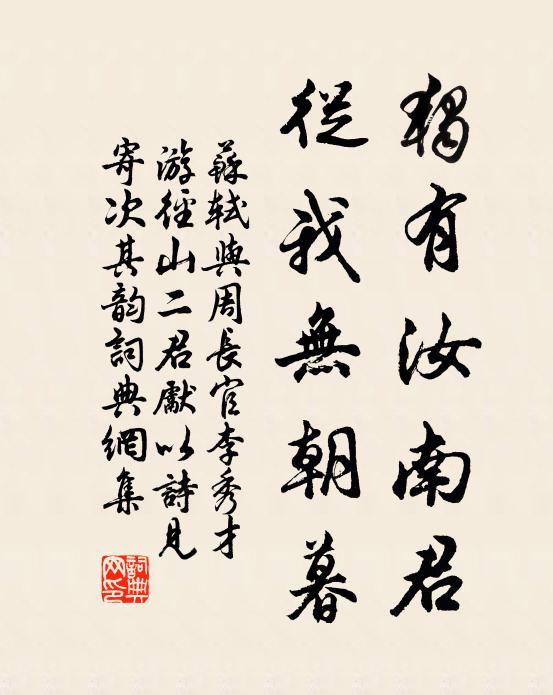 獨有汝南君
從我無朝暮
蘇軾與周長官李秀才
游徑山二君獻以詩見
寄次其韵詞典網集
詞典网印